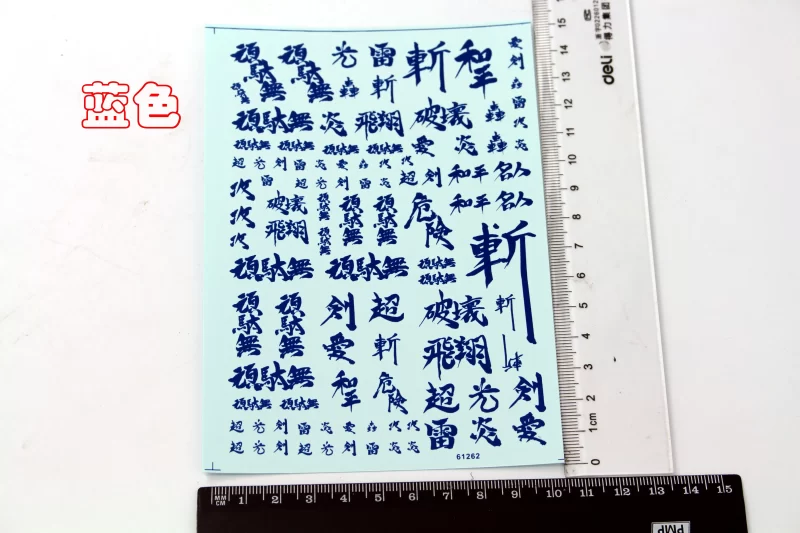 蓝色
頑駄無 頑駄無 光 雷 斬 和平 愛
頑駄無 蟲 斬 剣
頑駄無 炎 飛翔 破壊 蟲 雷
頑駄無 頑駄無 頑駄無 頑駄無 愛 炎 蟲
超 光 剣 雷 炎 愛
雷 超 光 剣 超 剣 和平 名人
和平 名人
破壊 頑駄無 頑駄無 頑駄無 危険
飛翔 頑駄無 斬
頑駄無 頑駄無 頑駄無
頑駄無
頑駄無 頑駄無 剣 超 破壊 斬
愛 斬 飛翔 斬
頑駄無 頑駄無 和平 危険 超 光 剣
頑駄無 頑駄無 雷 炎 愛
超 光 剣 超 光 剣 雷 炎 愛
超 光 剣 超 光 剣 愛 雷 炎
61262
deli 得力集团
15
14
13
12
11
10
9
8
7
6
5
4
3
2
1cm
0
MM
CM 1 2 3 4 5 6 7 8 9 10 11 12 13 14 15
PMP